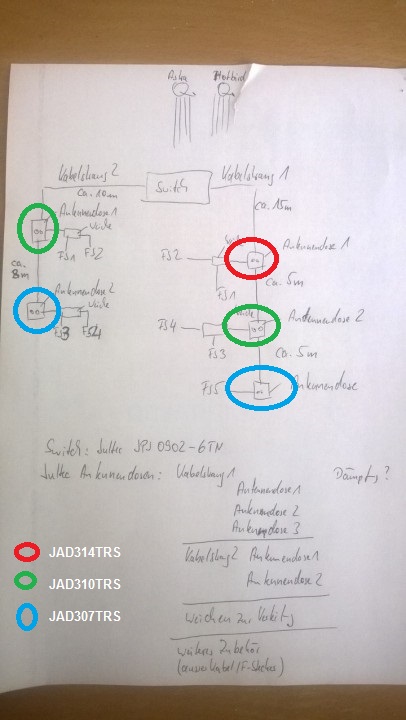 Astra Hotbird
Kabelstrang 2 Switch Kabelstrang 1
ca. 10m
ca. 15m
Antennendose 1
Weiche
FS1 FS2
ca.
8m
Antennendose 2
Weiche
FS3 FS4
Antennendose 1
FS2
FS1
ca. 5m
Weiche
Antennendose 2
FS4
FS3
ca. 5m
FS5
Antennendose
Switch: Jultec JPS0902-6TN
Jultec Antennendosen: Kabelstrang 1 Dämpfg?
Antennendose 1
Antennendose 2
Antennendose 3
Kabelstrg 2 Antennendose 1
Antennendose 2
JAD314TRS
JAD310TRS
JAD307TRS
Weichen zur
weiteres Zubehör